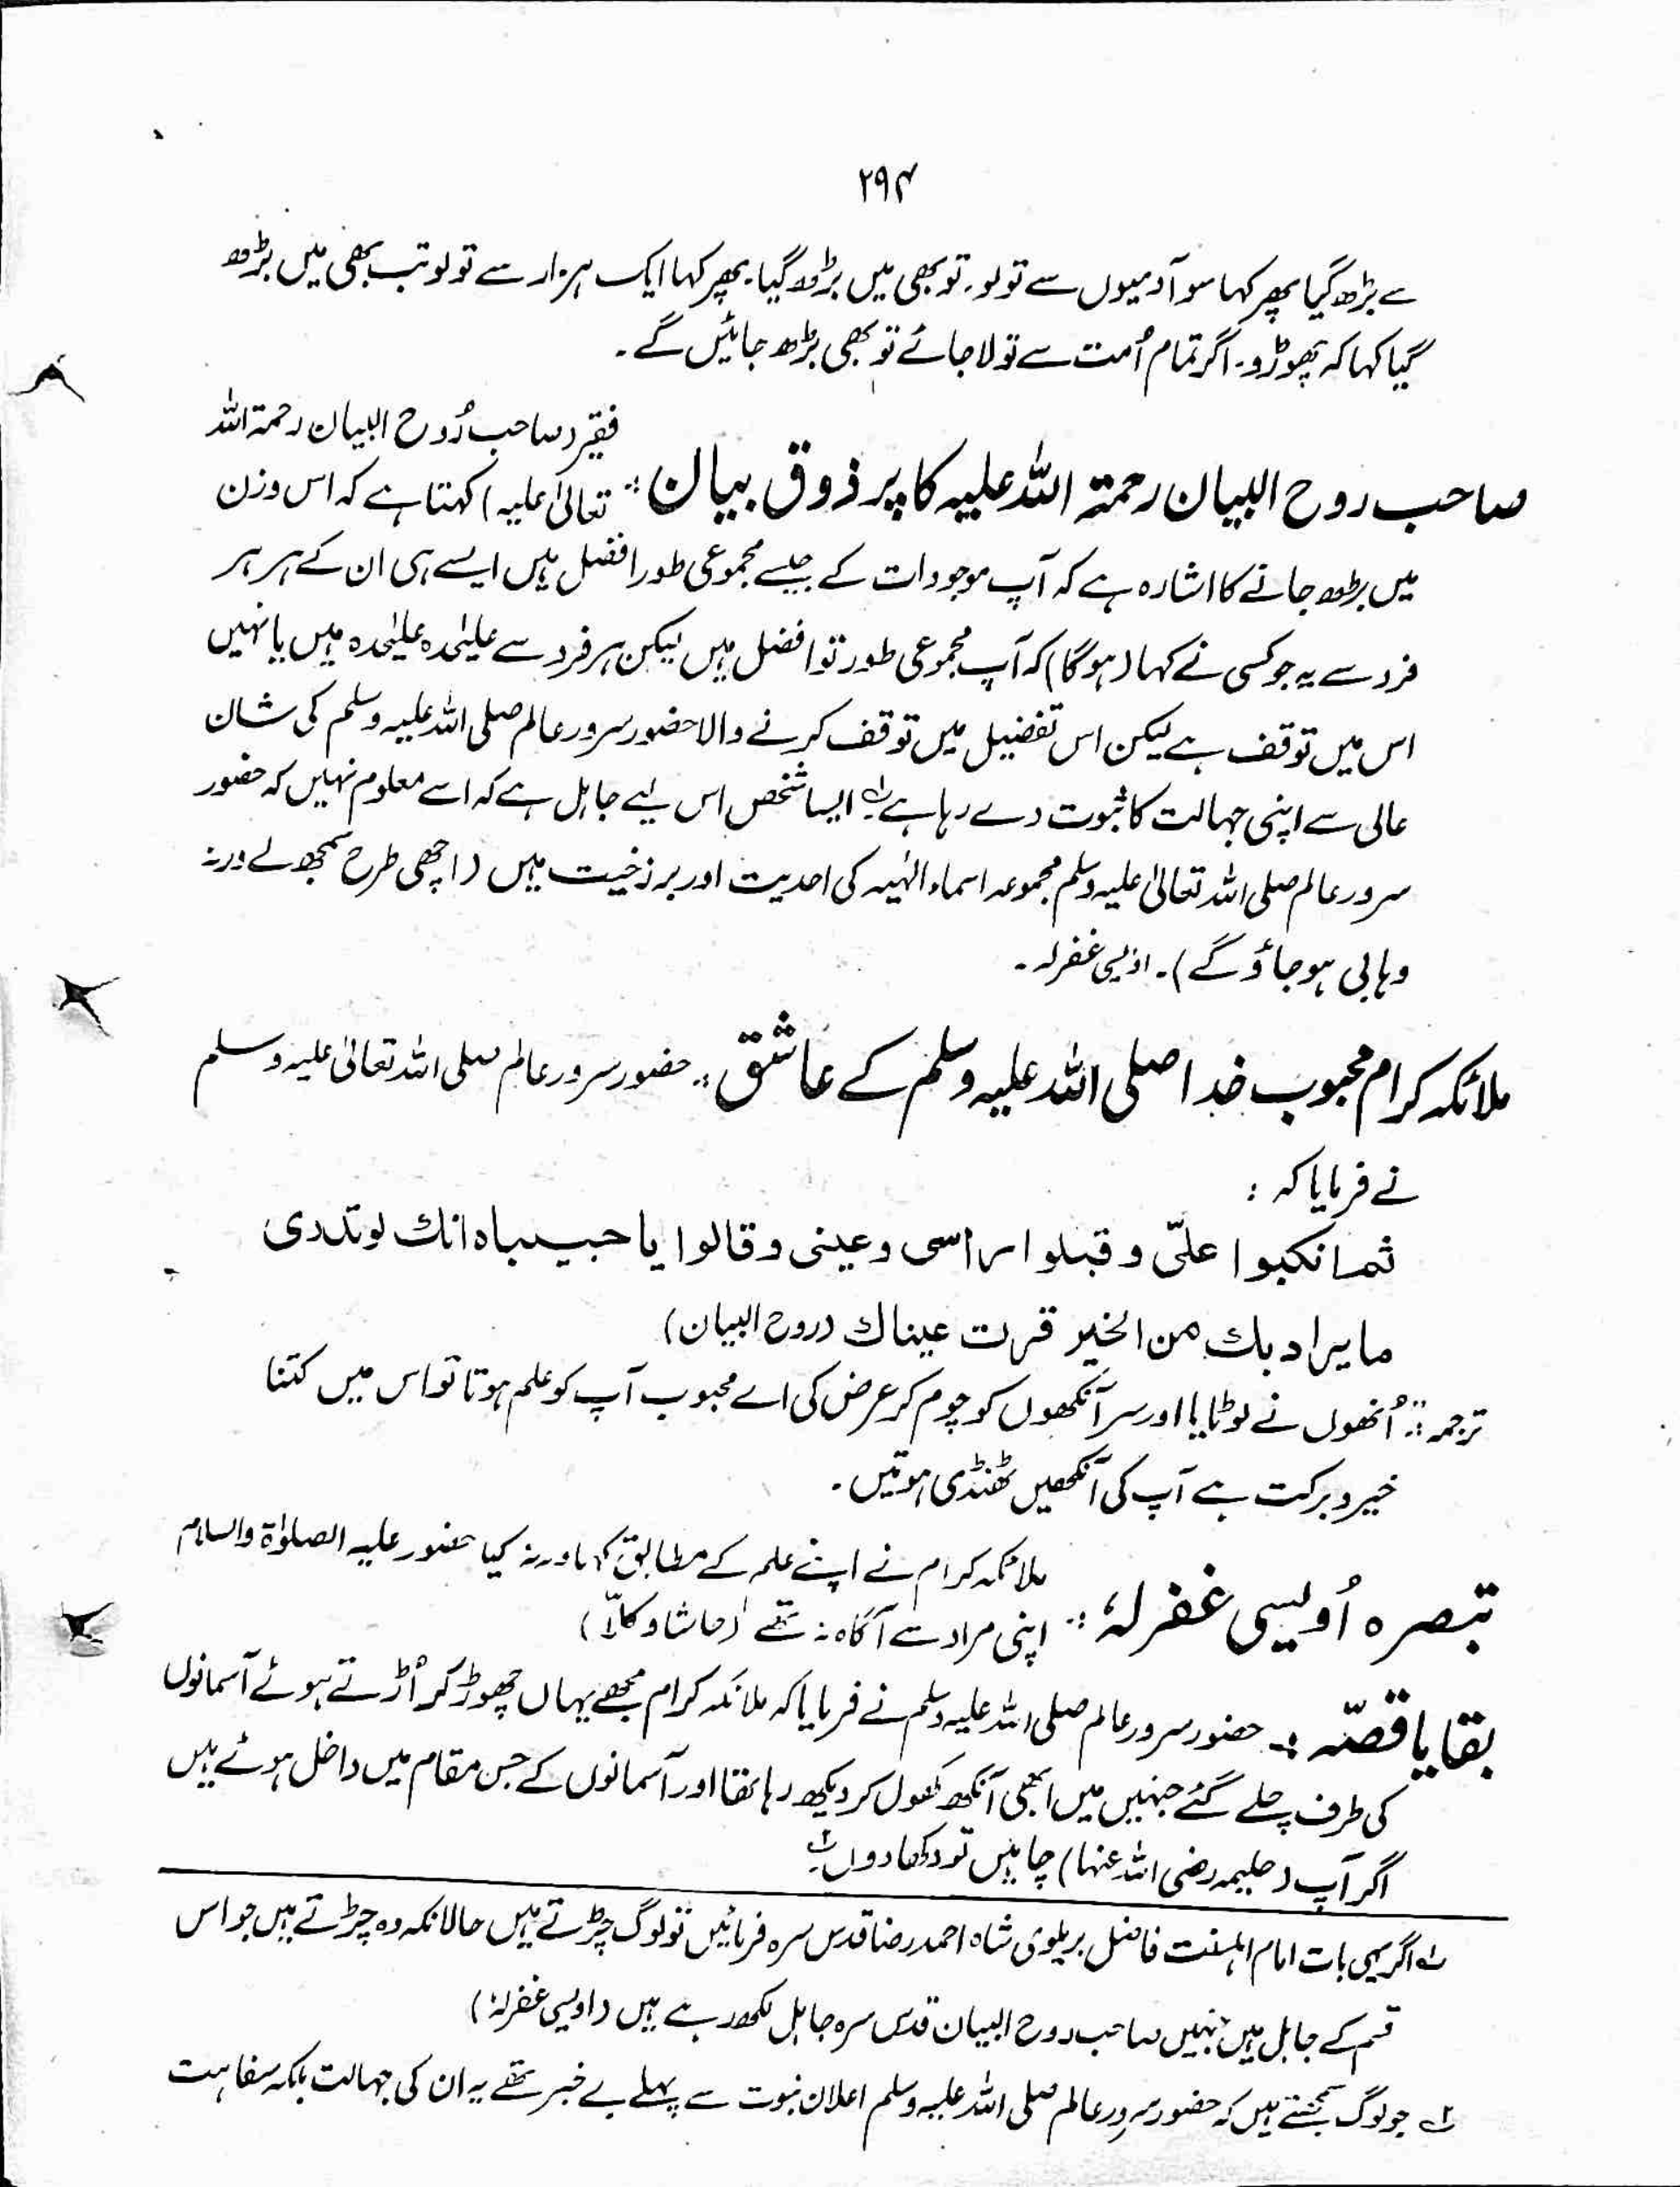 ۲۹۴
سے بڑھ گیا پھر کہا سو آدمیوں سے تولو۔ تو بھی میں بڑھ گیا۔ پھر کہا ایک ہزار سے تولو تب بھی میں بڑھ
گیا کہا کہ چھوڑو۔ اگر تمام اُمت سے تولا جائے تو بھی بڑھ جائیں گے۔
صاحب روح البیان رحمۃ اللہ علیہ کا پر ذوق بیان :
فقیر (صاحب رُوح البیان رحمۃ اللہ
تعالیٰ علیہ) کہتا ہے کہ اس وزن
میں بڑھ جانے کا اشارہ ہے کہ آپ موجودات کے جیسے مجموعی طور افضل ہیں ایسے ہی ان کے ہر ہر
فرد سے یہ جو کسی نے کہا (ہو گا) کہ آپ مجموعی طور تو افضل ہیں لیکن ہر فرد سے علیٰحدہ علیٰحدہ ہیں یا نہیں
اس میں توقف ہے لیکن اس تفضیل میں توقف کرنے والا حضور سرور عالم صلی اللہ علیہ وسلم کی شان
عالی سے اپنی جہالت کا ثبوت دے رہا ہے ۱؎ ایسا شخص اس لیے جاہل ہے کہ اسے معلوم نہیں کہ حضور
سرور عالم صلی اللہ تعالیٰ علیہ وسلم مجموعہ اسماء الٰہیہ کی احدیت اور برزخیت ہیں (اچھی طرح سمجھ لے ورنہ
وہابی ہو جاؤ گے)۔ اویسی غفرلہ۔
ملائکہ کرام محبوب خدا صلی اللہ علیہ وسلم کے عاشق : حضور سرور عالم صلی اللہ تعالیٰ علیہ وسلم
نے فرمایا کہ :
ثم انکبوا علیّ و قبلوا راسی و عینی و قالوا یا حبیباہ انك لو تدری
ما یراد بك من الخیر قرت عیناك (روح البیان)
ترجمہ : اُنھوں نے لوٹایا اور سر آنکھوں کو چوم کر عرض کی اے محبوب آپ کو علم ہوتا تو اس میں کتنا
خیر و برکت ہے آپ کی آنکھیں ٹھنڈی ہوتیں۔
تبصرہ اُویسی غفرلہٗ :
ملائکہ کرام نے اپنے علم کے مطابق کہا ورنہ کیا حضور علیہ الصلوٰۃ والسلام
اپنی مراد سے آگاہ نہ تھے (حاشا و کلّا)
بقایا قصّہ : حضور سرور عالم صلی اللہ علیہ وسلم نے فرمایا کہ ملائکہ کرام مجھے یہاں چھوڑ کر اُڑتے ہوئے آسمانوں
کی طرف چلے گئے جنہیں میں ابھی آنکھ کھول کر دیکھ رہا تھا اور آسمانوں کے جس مقام میں داخل ہوئے ہیں
اگر آپ (حلیمہ رضی اللہ عنہا) چاہیں تو دکھا دوں ۲؎
۱؎ اگر یہی بات امام اہلسنت فاضل بریلوی شاہ احمد رضا قدس سرہ فرمائیں تو لوگ چڑتے ہیں حالانکہ وہ چڑتے ہیں جو اس
قسم کے جاہل ہیں جنہیں صاحب روح البیان قدس سرہ جاہل لکھ رہے ہیں (اویسی غفرلہٗ)
۲؎ جو لوگ سمجھتے ہیں کہ حضور سرور عالم صلی اللہ علیہ وسلم اعلان نبوت سے پہلے بے خبر تھے یہ ان کی جہالت بلکہ سفاہت